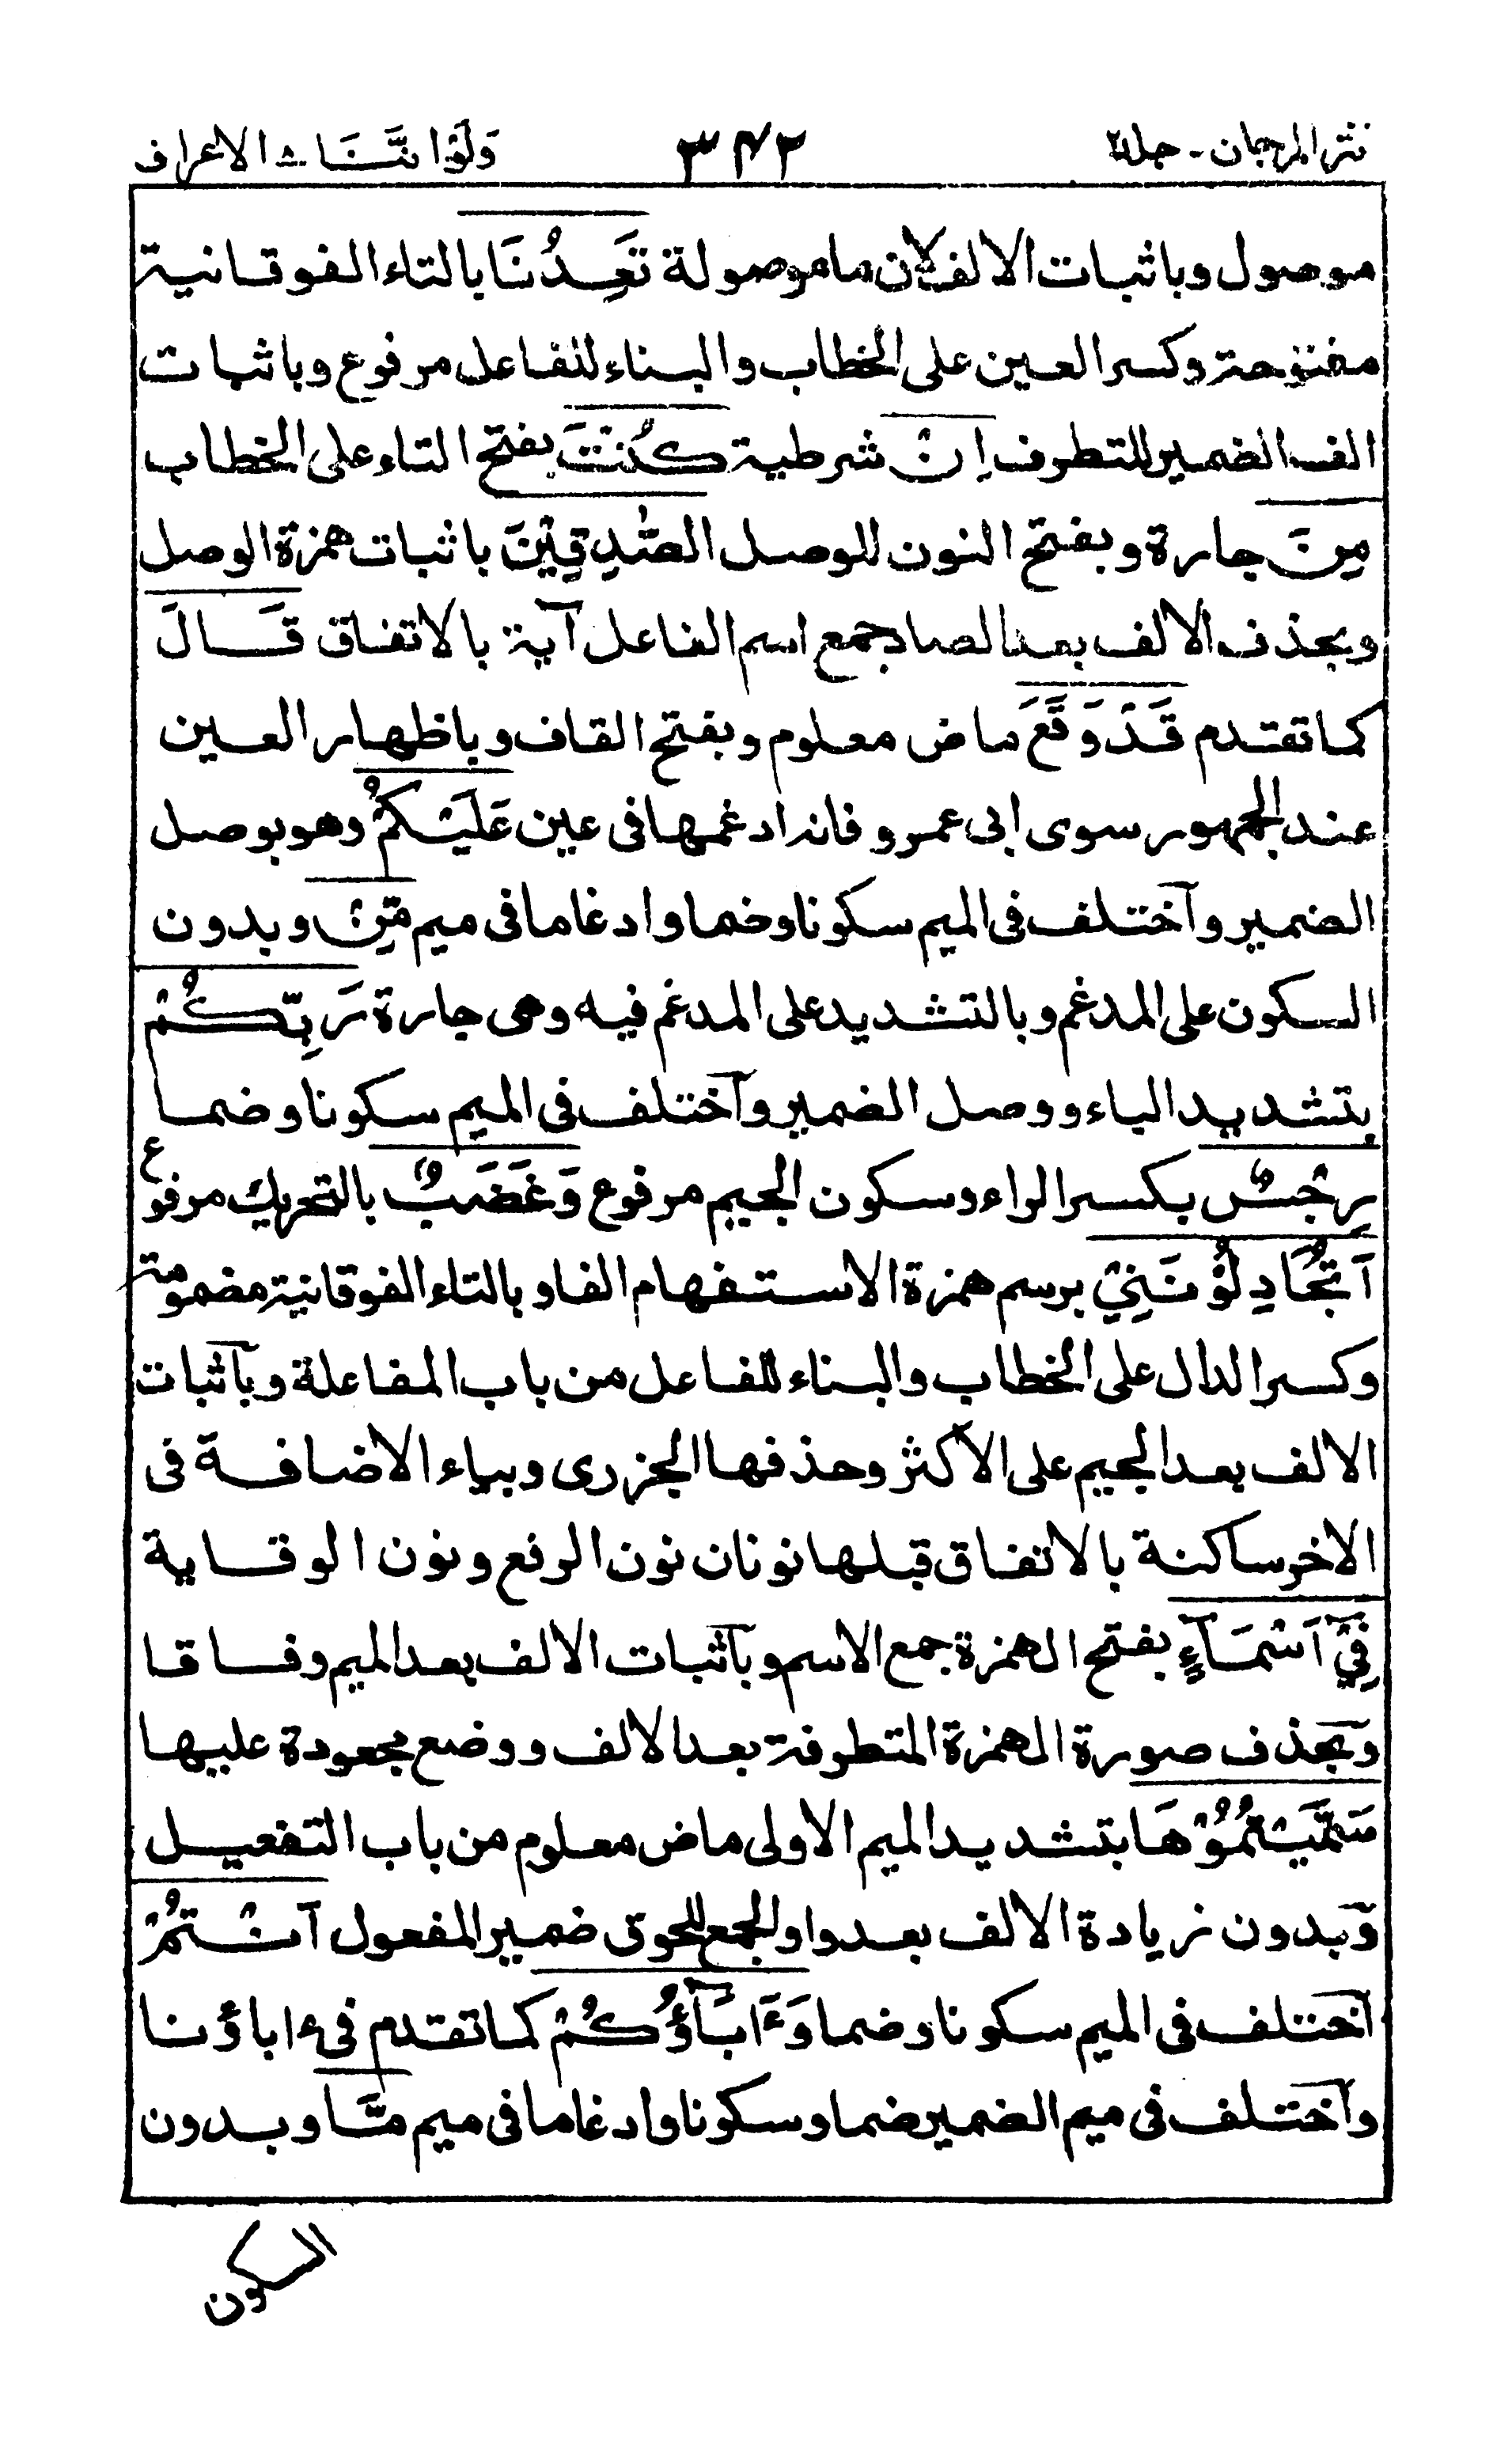 نثر المرجان - جلد٢
٣٤٢
ولواننا ـ الاعراف
موصول وباثبات الالف لان ما موصولة تَعِدُنَا بالتاء الفوقانية
مفتوحة وكسر العين على الخطاب والبناء للفاعل مرفوع وباثبات
الف الضمير للتطرف اِنْ شرطية كُنْتَ بفتح التاء على الخطاب
مِنَ جارة وبفتح النون للوصل الصّٰدِقِيْنَ باثبات همزة الوصل
وبحذف الالف بعد الصاد جمع اسم الفاعل آية بالاتفاق قَالَ
كما تقدم قَدْ وَقَعَ ماض معلوم وبفتح القاف وباظهار العين
عند الجمهور سوى ابى عمرو فانه ادغمها فى عين عَلَيْكُمْ وهو بوصل
الضمير وآختلف فى الميم سكونا وضما وادغاما فى ميم مِّنْ وبدون
السكون على المدغم وبالتشديد على المدغم فيه وهى جارة رَبِّكُمْ
بتشديد الباء ووصل الضمير وآختلف فى الميم سكونا وضما
رِجْسٌ بكسر الراء وسكون الجيم مرفوع وَغَضَبٌ بالتحريك مرفوع
اَتُجَادِلُوْنَنِيْ برسم همزة الاستفهام الفا وبالتاء الفوقانية مضمومة
وكسر الدال على الخطاب والبناء للفاعل من باب المفاعلة وبآثبات
الالف بعد الجيم على الاكثر وحذفها الجزرى وبياء الاضافة فى
الاخر ساكنة بالاتفاق قبلها نونان نون الرفع ونون الوقاية
فِيْٓ اَسْمَآءٍ بفتح الهمزة جمع الاسم وبآثبات الالف بعد الميم وفاقا
وبحذف صورة الهمزة المتطرفة بعد الالف ووضع مجعودة عليها
سَمَّيْتُمُوْهَا بتشديد الميم الاولى ماض معلوم من باب التفعيل
وبدون زيادة الالف بعد واو الجمع للحوق ضمير المفعول اَنْتُمْ
آختلف فى الميم سكونا وضما وَءَابَآؤُكُمْ كما تقدم فى ءاباؤنا
وآختلف فى ميم الضمير ضما وسكونا وادغاما فى ميم مَّا وبدون
السكون